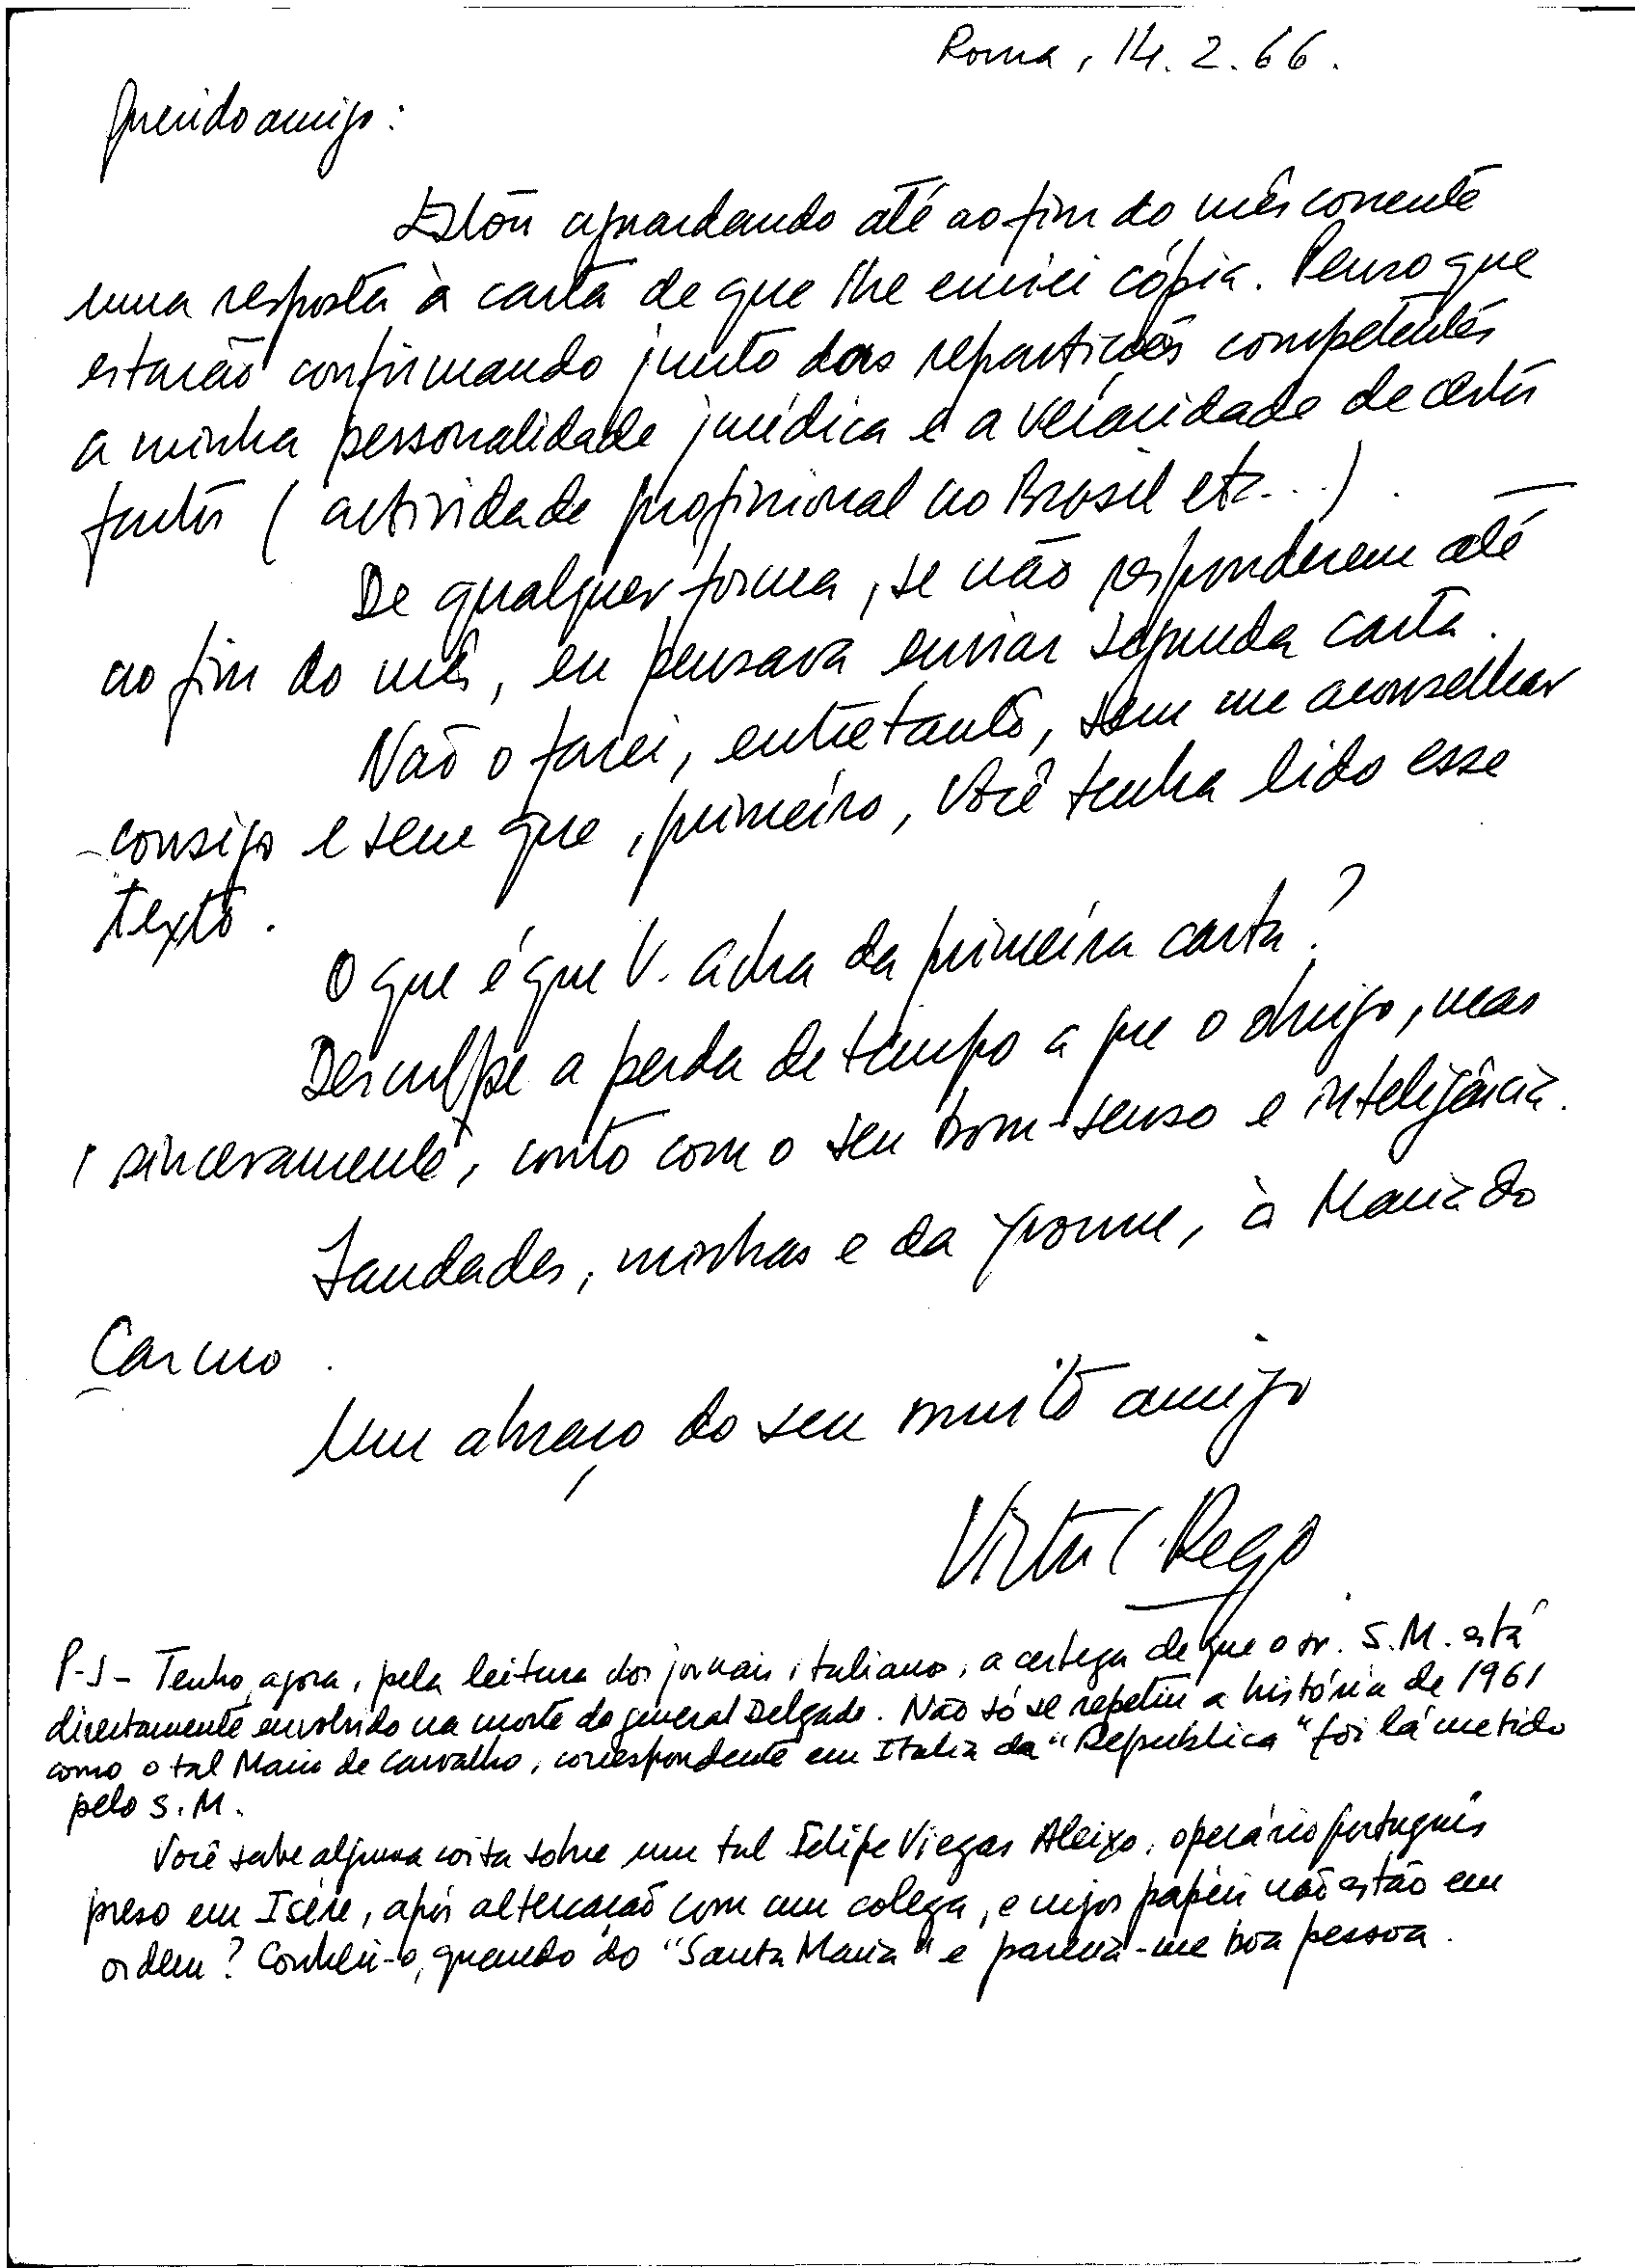 Roma, 14.2.66.
Querido amigo:
Estou aguardando até ao fim do mês corrente
uma resposta à carta de que lhe enviei cópia. Penso que
estarão confirmando junto das repartições competentes
a minha personalidade jurídica e a veracidade de certos
factos (actividade profissional no Brasil etc...).
De qualquer forma, se não responderem até
ao fim do mês, eu pensava enviar segunda carta.
Não o farei, entretanto, sem me aconselhar
consigo e sem que, primeiro, Você tenha lido esse
texto.
O que é que V. acha da primeira carta?
Desculpe a perda de tempo a que o obrigo, mas
, sinceramente, conto com o seu bom-senso e inteligência.
Saudades, minhas e da Yvonne, à Maria do
Carmo.
Um abraço do seu muito amigo
C. Rego
P-S - Tenho, agora, pela leitura dos jornais italianos, a certeza de que o sr. S.M. está
directamente envolvido na morte do general Delgado. Não só se repetiu a história de 1961
como o tal Mario de Carvalho, correspondente em Italia da "Republica" foi lá metido
pelo S.M.
Você sabe alguma coisa sobre um tal Felipe Viegas Aleixo, operário português
preso em Isère, após altercação com um colega, e cujos papéis não estão em
ordem? Conheci-o, quando do "Santa Maria" e parecia-me boa pessoa.